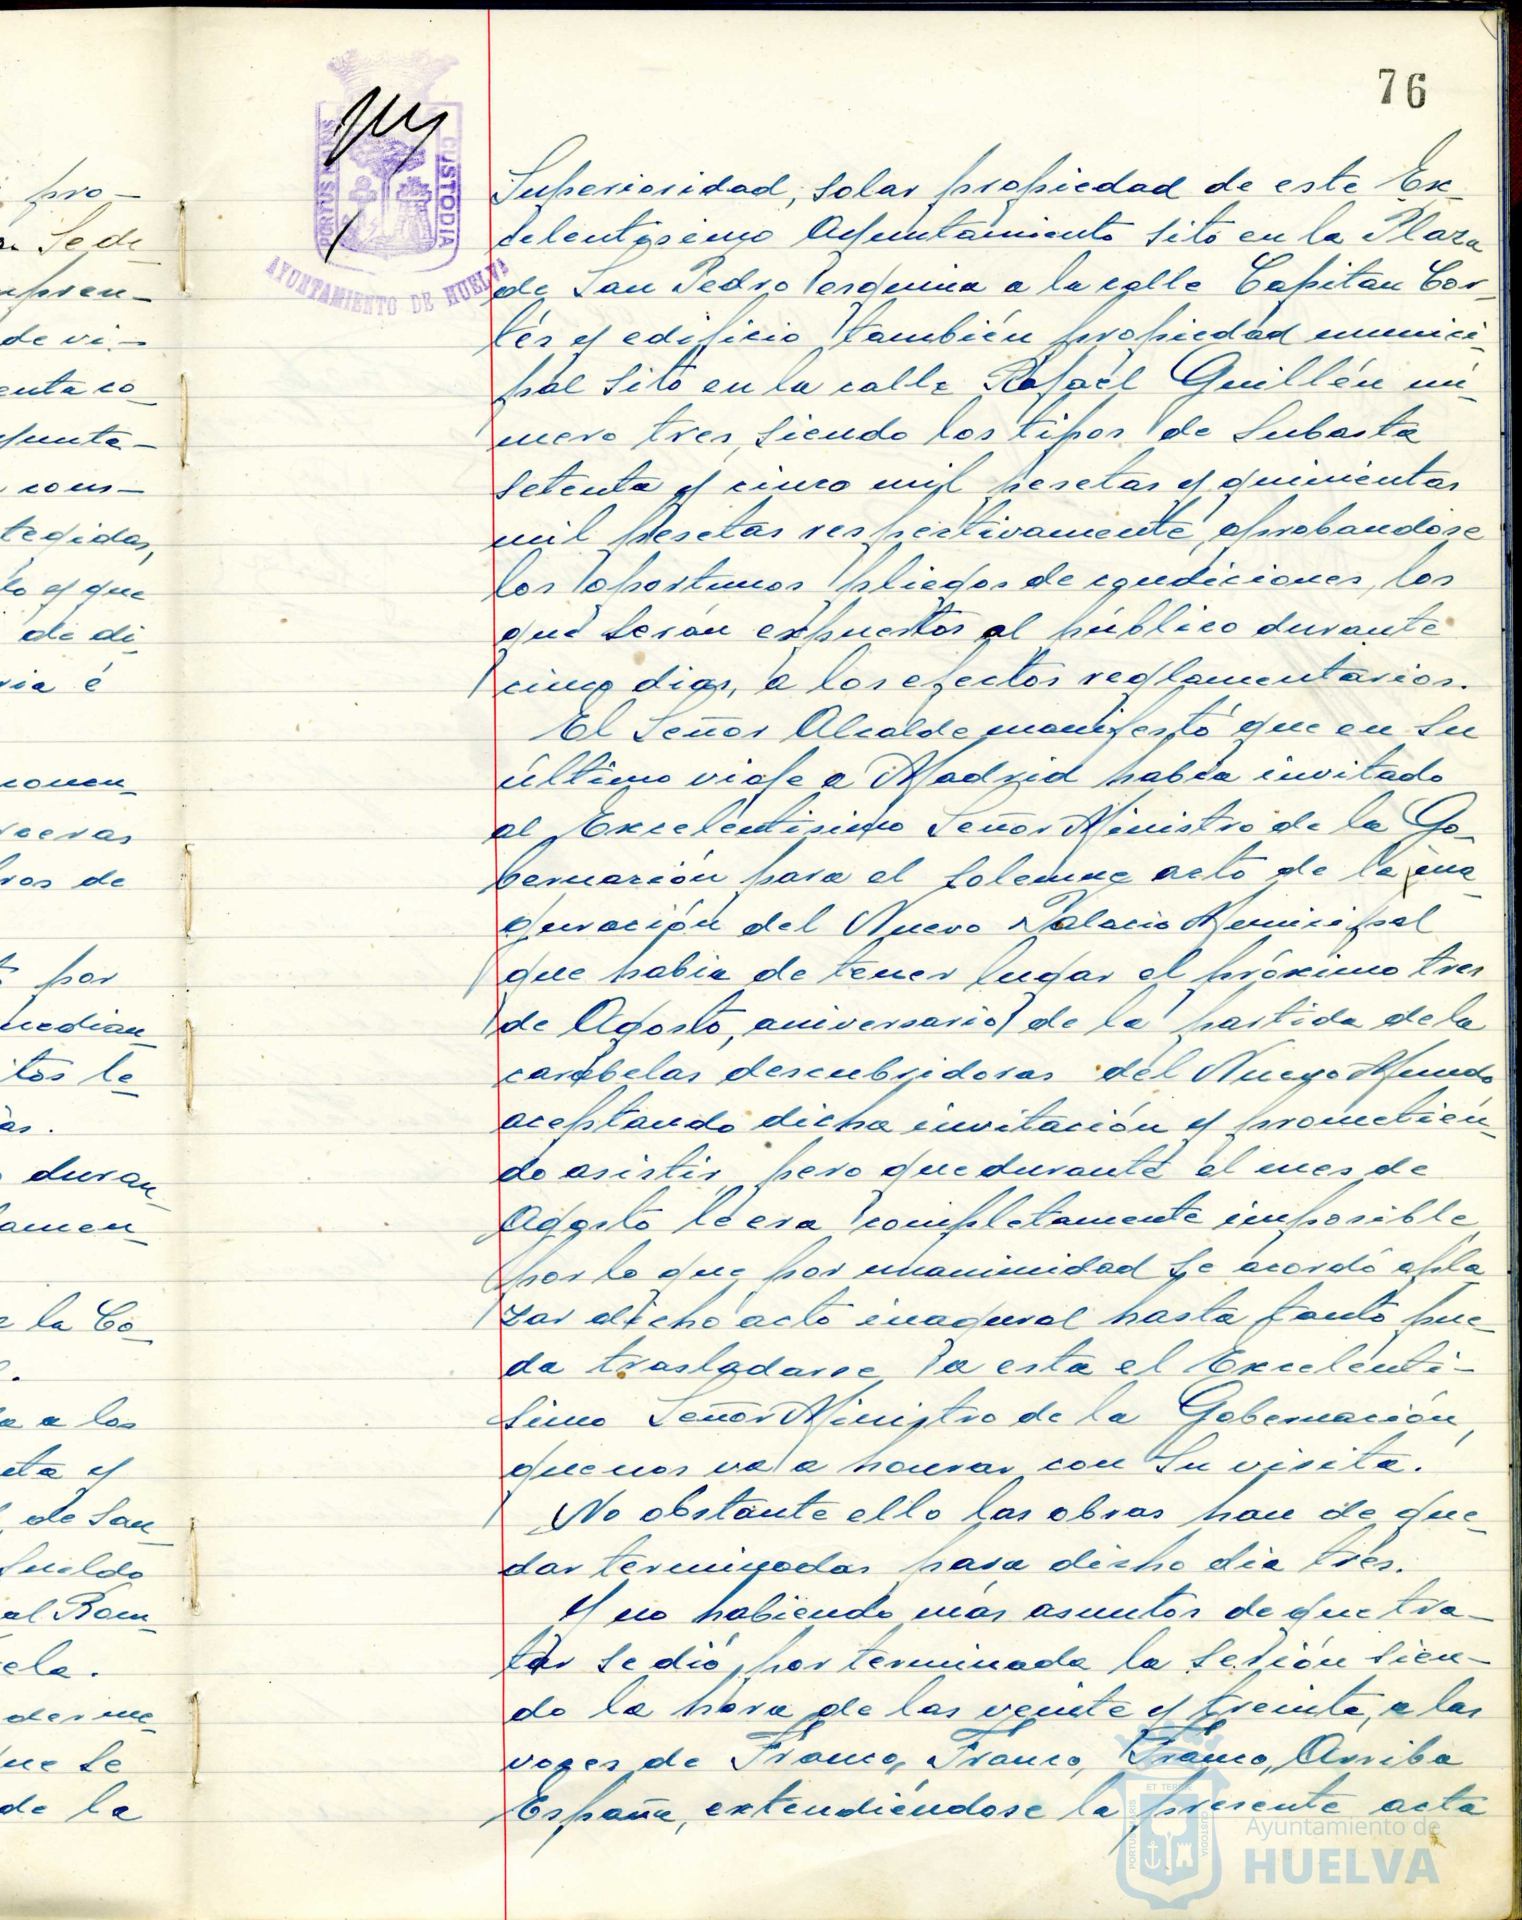 76
PORTUS MARIS
CUSTODIA
AYUNTAMIENTO DE HUELVA
Superioridad, solar propiedad de este Ex-
celentisimo Ayuntamiento sito en la Plaza
de San Pedro esquina a la calle Capitan Cor-
tés y edificio también propiedad munici-
pal sito en la calle Rafael Guillén nú-
mero tres, siendo los tipos de subasta
setenta y cinco mil pesetas y quinientas
mil pesetas respectivamente, aprobandose
los oportunos pliegos de condiciones, los
que serán expuestos al público durante
cinco dias, a los efectos reglamentarios.
El Señor Alcalde manifestó que en su
último viaje a Madrid habia invitado
al Excelentisimo Señor Ministro de la Go-
bernación para el solemne acto de la ina-
guración del Nuevo Palacio Municipal
que habia de tener lugar el próximo tres
de Agosto, aniversario de la partida de la
carabelas descubridoras del Nuevo Mundo
aceptando dicha invitación y prometién-
do asistir, pero que durante el mes de
Agosto le era completamente imposible,
por lo que, por unanimidad se acordó apla
zar dicho acto inagural hasta tanto pue-
da trasladarse a esta el Excelenti-
simo Señor Ministro de la Gobernación,
que nos va a honrar con su visita.
No obstante ello las obras han de que-
dar terminadas para dicho dia trés.
Y no habiendo más asuntos de que tra-
tar se dió por terminada la sesión sien-
do la hora de las veinte y treinta, a las
voces de Franco, Franco, Franco, Arriba
España, extendiéndose la presente acta
pro-
Se de
mpren-
de vi-
enta co-
yunta-
cons-
tegidas,
to y que
de di-
ria é
conen-
ros de
por
median-
itos le-
as.
duran-
amen-
e la Co-
a a los
eta y
de San-
Sueldo
al Rom-
ela.
que se
de la
ET TERRE
PORTUS MARIS
CUSTODIA
Ayuntamiento de
HUELVA